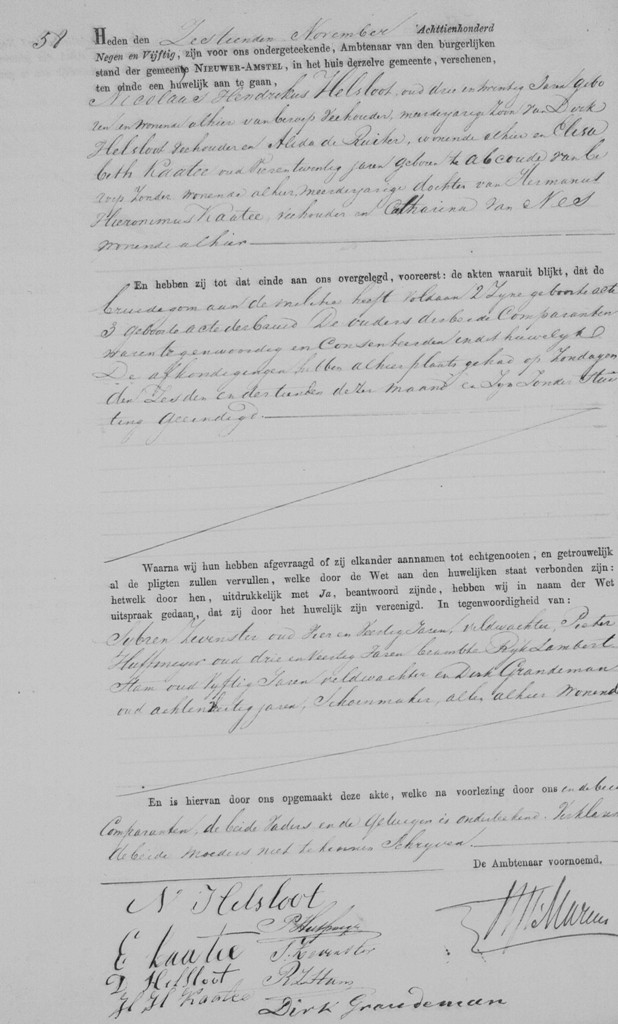 58
Heden den Zestienden November Achttienhonderd
Negen en Vijftig, zijn voor ons ondergeteekende, Ambtenaar van den burgerlijken
stand der gemeente NIEUWER-AMSTEL, in het huis derzelve gemeente, verschenen,
ten einde een huwelijk aan te gaan,
Nicolaas Hendrikus Helsloot, oud drie en twentig Jaren gebo
ren en wonende alhier van beroep Veehouder, meerderjarige Zoon van Dirk
Helsloot Veehouder en Alida de Ruiter, wonende alhier en Elisa
beth Kaatee oud Vierentwentig jaren geboren te Abcoude van be
roep Zonder wonende alhier, meerderjarige dochter van Hermanus
Hieronimus Kaatee, Veehouder en Catharina Van Nes
wonende alhier
En hebben zij tot dat einde aan ons overgelegd, vooreerst: de akten waaruit blijkt, dat de
bruidegom aan de melitie heeft voldaan 2 Zyne geboorte acte
3 geboorte acte der bruid De ouders der beide Comparanten
waren tegenwoordig en Consenteerden in dit huwelyk
De afkondigingen hebben alhier plaats gehad op Zondagen
den Zesden en dertienden dezer maand en Zyn Zonder Stui
ting geeindigd.
Waarna wij hun hebben afgevraagd of zij elkander aannamen tot echtgenooten, en getrouwelijk
al de pligten zullen vervullen, welke door de Wet aan den huwelijken staat verbonden zijn:
hetwelk door hen, uitdrukkelijk met Ja, beantwoord zijnde, hebben wij in naam der Wet
uitspraak gedaan, dat zij door het huwelijk zijn vereenigd. In tegenwoordigheid van:
Sybren Zevenster oud Vier en Veertig Jaren, veldwachter, Pieter
oud drie en Veertig Jaren beambte Ryk Lambert
Stam oud Vyftig Jaren veldwachter en Dirk Grandeman
oud achtenveertig jaren, Schoenmaker, allen alhier Wonend
En is hiervan door ons opgemaakt deze akte, welke na voorlezing door ons en de beide
Comparanten, de beide Vaders en de Getuigen is onderteekend. Verklarende
de beide moeders niet te kennen Schryven.
De Ambtenaar voornoemd.
N Helsloot
E Kaatee
S. Zevenster
D Helsloot
R L Stam
H H Kaatee
Dirk Grandeman